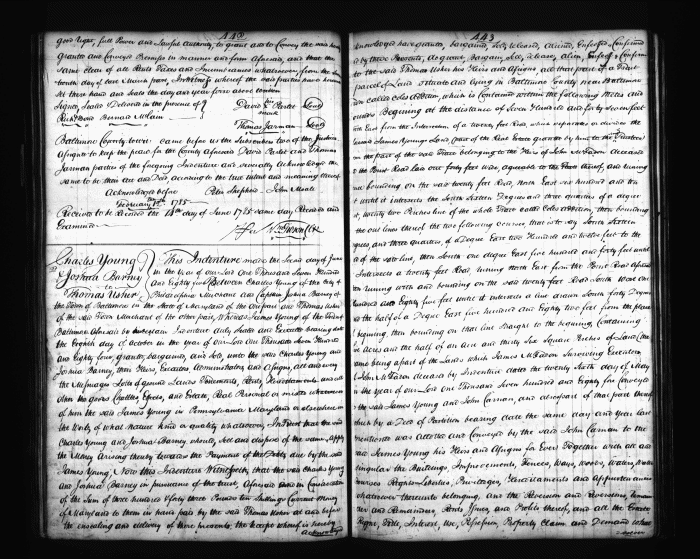 442
good Right, full Power and Lawful Authority, to grant and to Convey the said hereby
Granted and Conveyed Premises in manner and form Aforesaid, and that the
same Clear of all Rents Fees and Incumbrances whatsoever, from the
day of March past, In Witness whereof the said parties have hereunto
set their hand and Seals the day and year first above written
Signed, Sealed Delivered in the presence of
David Parker Seal
mark
Richd Bond Bernard
Thomas Jarman Seal
Baltimore County to wit: came before us the Subscribers two of the Justices
Assigned to keep the peace for the County Aforesaid David Parker and Thomas
Jarman parties of the foregoing Indenture and severally acknowledge the
same to be their Act and Deed, according to the true intent and meaning thereof
Acknowledged before Peter Shepherd - John Merale
February 1785
Received to be Recorded the 14th day of June 1785 same day Recorded and
Examined
Per Wm Gibson Clk
Charles Young
& Joshua Barney
to
Thomas Usher
This Indenture made the Second day of June
in the Year of our Lord One Thousand Seven Hundred
and Eighty five Between Charles Young of the City of
Philadelphia Merchant and Captain Joshua Barney of
the Town of Baltimore in the State of Maryland of the one part and Thomas Usher
of the said Town Merchant of the other part, Whereas James Young of the Town of
Baltimore Aforesaid by Certain Indenture duly Sealed and Executed bearing date
the Eighth day of October in the Year of our Lord One Thousand Seven Hundred
and Eighty four, granted, bargained, and sold, unto the said Charles Young and
Joshua Barney, their Heirs, Executors, Administrators and Assigns, all and every
the Messuages Lots of ground Lands Tenements, Rents, Hereditaments, and all
other the goods Chattles, Effects, and Estate, Real Personal or mixed whatsoever
of him the said James Young in Pennsylvania Maryland or elsewhere in
the World, of what nature kind or quality whatsoever, In Trust that the said
Charles Young and Joshua Barney should, Sell and dispose of the same, Apply
the Money Arising thereby towards the Payment of the Debts due by the said
James Young, Now this Indenture Witnesseth, that the said Charles Young
and Joshua Barney in pursuance of the trust, Aforesaid and in Consideration
of the Sum of three hundred & forty three Pounds ten Shillings Current Money
of Maryland to them in hand paid by the said Thomas Usher at and before
the ensealing and delivery of these presents, the Receipt whereof is hereby
acknow
443
knowledged have granted, bargained, Sold, released, aliened, Enfeoffed & Confirmed
and by these Presents, do grant, bargain, Sell, release, alien, Enfeoff & Confirm
to the said Thomas Usher his Heirs and Assigns, all that part of a Tract or
parcel of Land situate and lying in Baltimore County near Baltimore
Town called Coles Addition, which is Contained within the following Metes and
Bounds Begining at the distance of Seven Hundred and forty Seven feet
East from the Intersection of a twenty feet Road, which seperates or divides the
said James Youngs Land
on the part of the said Tract belonging to the Heirs of John McFadon deceased
to the Point Road laid out forty feet wide, agreeable to the Plott thereof, and runing
bounding on the said twenty feet Road, North East six hundred and ten
feet until it intersects the South Sixteen Degrees and three quarters of a degree
East, twenty two Perches line of the whole Tract called Coles Addition, then bounding
on the out lines thereof the two following courses, that is to say South Sixteen
Degrees, and three quarters, of a Degree East two Hundred and twelve feet to the
end of the said line, then South one degree East five hundred and forty feet until
it Intersects a twenty feet Road, runing North East from the Point Road Aforesaid
then runing with and bounding on the said twenty feet Road South West one
Hundred and Eighty five feet until it intersects a line drawn South forty Degrees
and the half of a Degree East five hundred and Eighty two feet from the place
of begining, then bounding on that line Straight to the begining, Containing
five Acres and the half of an Acre and thirty Six Square Perches of Land (the
same being apart of the Lands which James McFadon Surviving Executor
of John McFadon deceased by Indenture dated the twenty Sixth day of May
in the Year of our Lord One Thousand Seven hundred and Eighty four Conveyed
to the said James Young and John Cannon, and also part of that part thereof
which by a Deed of Partition bearing date the same day and Year last
Mentioned was alotted and Conveyed by the said John Cannon to the
said James Young his Heirs and Assigns for Ever Together with all and
singular the Buildings, Improvements, Fences, Ways, Woods, Waters, Water
Courses Rights Liberties, Priviledges, Hereditaments and Appurtenances
whatsoever thereunto belonging, and the Reversion and Reversions, Remainder
and Remainders, Rents Issues, and Profits thereof, and all the Estate
Right, Title, Interest, Use, Possession, Property Claim and Demand whatsoever